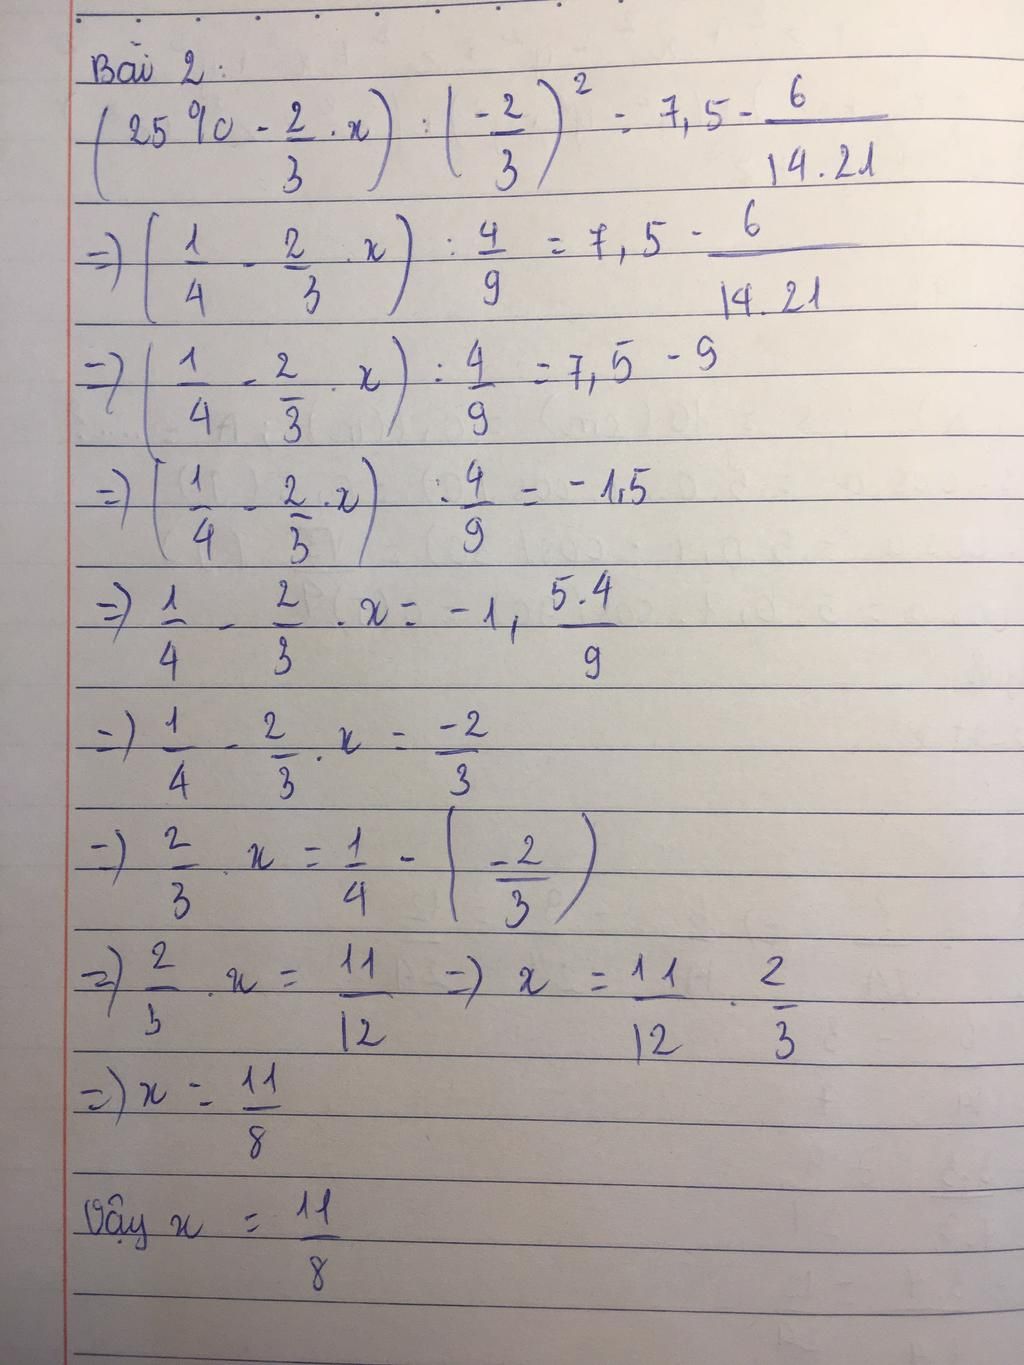 Bài 2:
(25% - 2/3 . x) : (-2/3)² = 7,5 - 6/14.21
=> (1/4 - 2/3 . x) : 4/9 = 7,5 - 6/14.21
=> (1/4 - 2/3 . x) : 4/9 = 7,5 - 9
=> (1/4 - 2/3 . x) : 4/9 = -1,5
=> 1/4 - 2/3 . x = -1, 5.4/9
=> 1/4 - 2/3 . x = -2/3
=> 2/3 . x = 1/4 - (-2/3)
=> 2/3 . x = 11/12 => x = 11/12 . 2/3
=> x = 11/8
Vậy x = 11/8